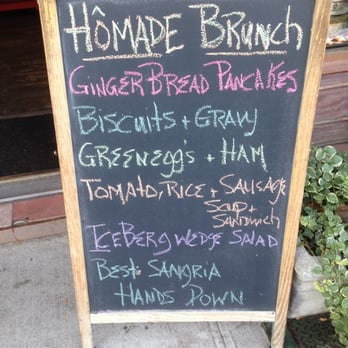 HÔMADE BRUNCH
GINGERBREAD PANCAKES
BISCUITS + GRAVY
GREENEGG'S + HAM
TOMATO, RICE + SAUSAGE
SOUP +
SANDWICH
ICEBERG WEDGE SALAD
BEST SANGRIA
HANDS DOWN